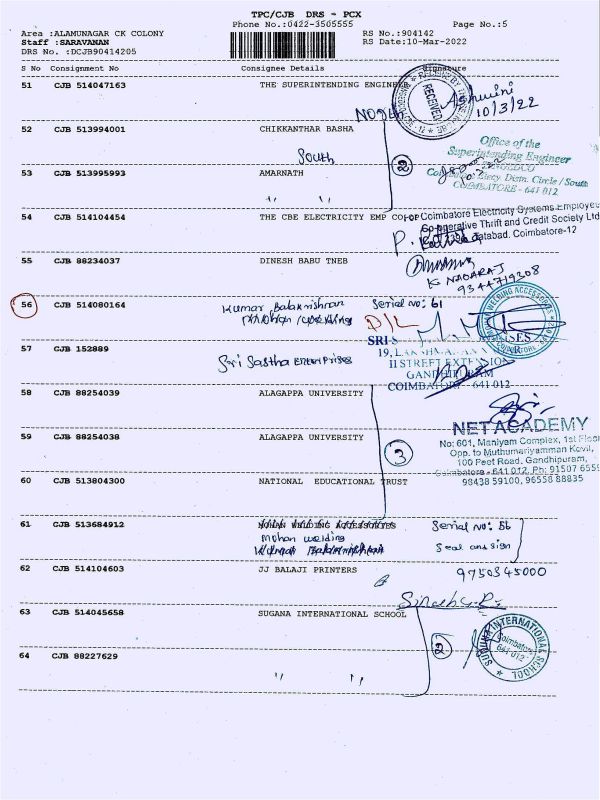 TPC/CJB DRS - PCX
Phone No.:0422-3505555 Page No.:5
Area :ALAMUNAGAR CK COLONY RS No.:904142
Staff :SARAVANAN RS Date:10-Mar-2022
DRS No. :DCJB90414205
S No Consignment No Consignee Details Signature
51 CJB 514047163 THE SUPERINTENDING ENGINEER
RECEIVED
North
10/3/22
52 CJB 513994001 CHIKKANTHAR BASHA
South
Office of the
Superintending Engineer
TANGEDCO
Coimbatore Elecy Distn. Circle / South
COIMBATORE - 641 012
53 CJB 513995993 AMARNATH
" "
2
54 CJB 514104454 THE CBE ELECTRICITY EMP CO-OP
For Coimbatore Electricity Systems Employees
Co-operative Thrift and Credit Society Ltd
Tatabad, Coimbatore-12
55 CJB 88234037 DINESH BABU TNEB
K NAGARAJ
9344719208
56 CJB 514080164 Kumar Balakrishnan Serial no: 61
D/L
WELDING ACCESSORIES
57 CJB 152889 Sri Sastha Enterprises
SRI S
II STREET EXTENSION
GANDHIPURAM
COIMBATORE - 641 012
58 CJB 88254039 ALAGAPPA UNIVERSITY
NET ACADEMY
No: 601, Maniyam Complex, 1st Floor
Opp. to Muthumariyamman Kovil,
100 Feet Road, Gandhipuram,
Coimbatore - 641 012. Ph: 91507 6559
98438 59100, 96558 88835
59 CJB 88254038 ALAGAPPA UNIVERSITY
3
60 CJB 513804300 NATIONAL EDUCATIONAL TRUST
61 CJB 513684912 MOHAN WELDING ACCESSORIES Serial no: 56
Mohan welding Seal and sign
62 CJB 514104603 JJ BALAJI PRINTERS 9750345000
63 CJB 514045658 SUGANA INTERNATIONAL SCHOOL
2
INTERNATIONAL SCHOOL
Coimbatore
641 012
64 CJB 88227629
" "